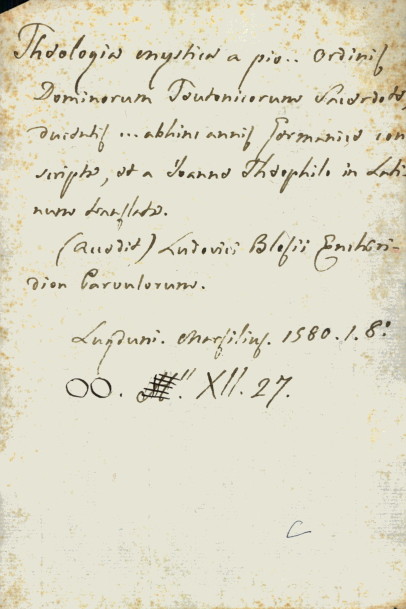 Theologia mystica a pio.. Ordinis
Dominorum Teutonicorum Sacerdote,
ducentis ... abhinc annis Germanice con
scripta, et a Joanne Theophilo in Lati-
num translata.
(Accedit) Ludovici Blosii Enchiri-
dion Parvulorum.
Lugduni. Marsilius. 1580. 1. 8º
OO. XII. 27.
C